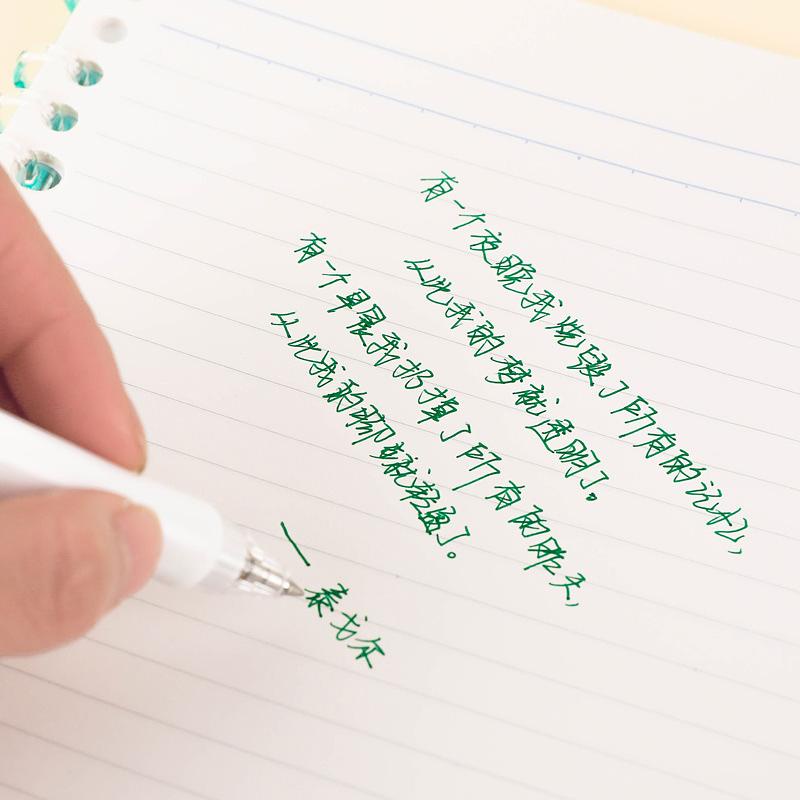 有一个夜晚我烧毁了所有的记忆,
从此我的梦就透明了。
有一个早晨我扔掉了所有的昨天,
从此我的脚步就轻盈了。
——泰戈尔